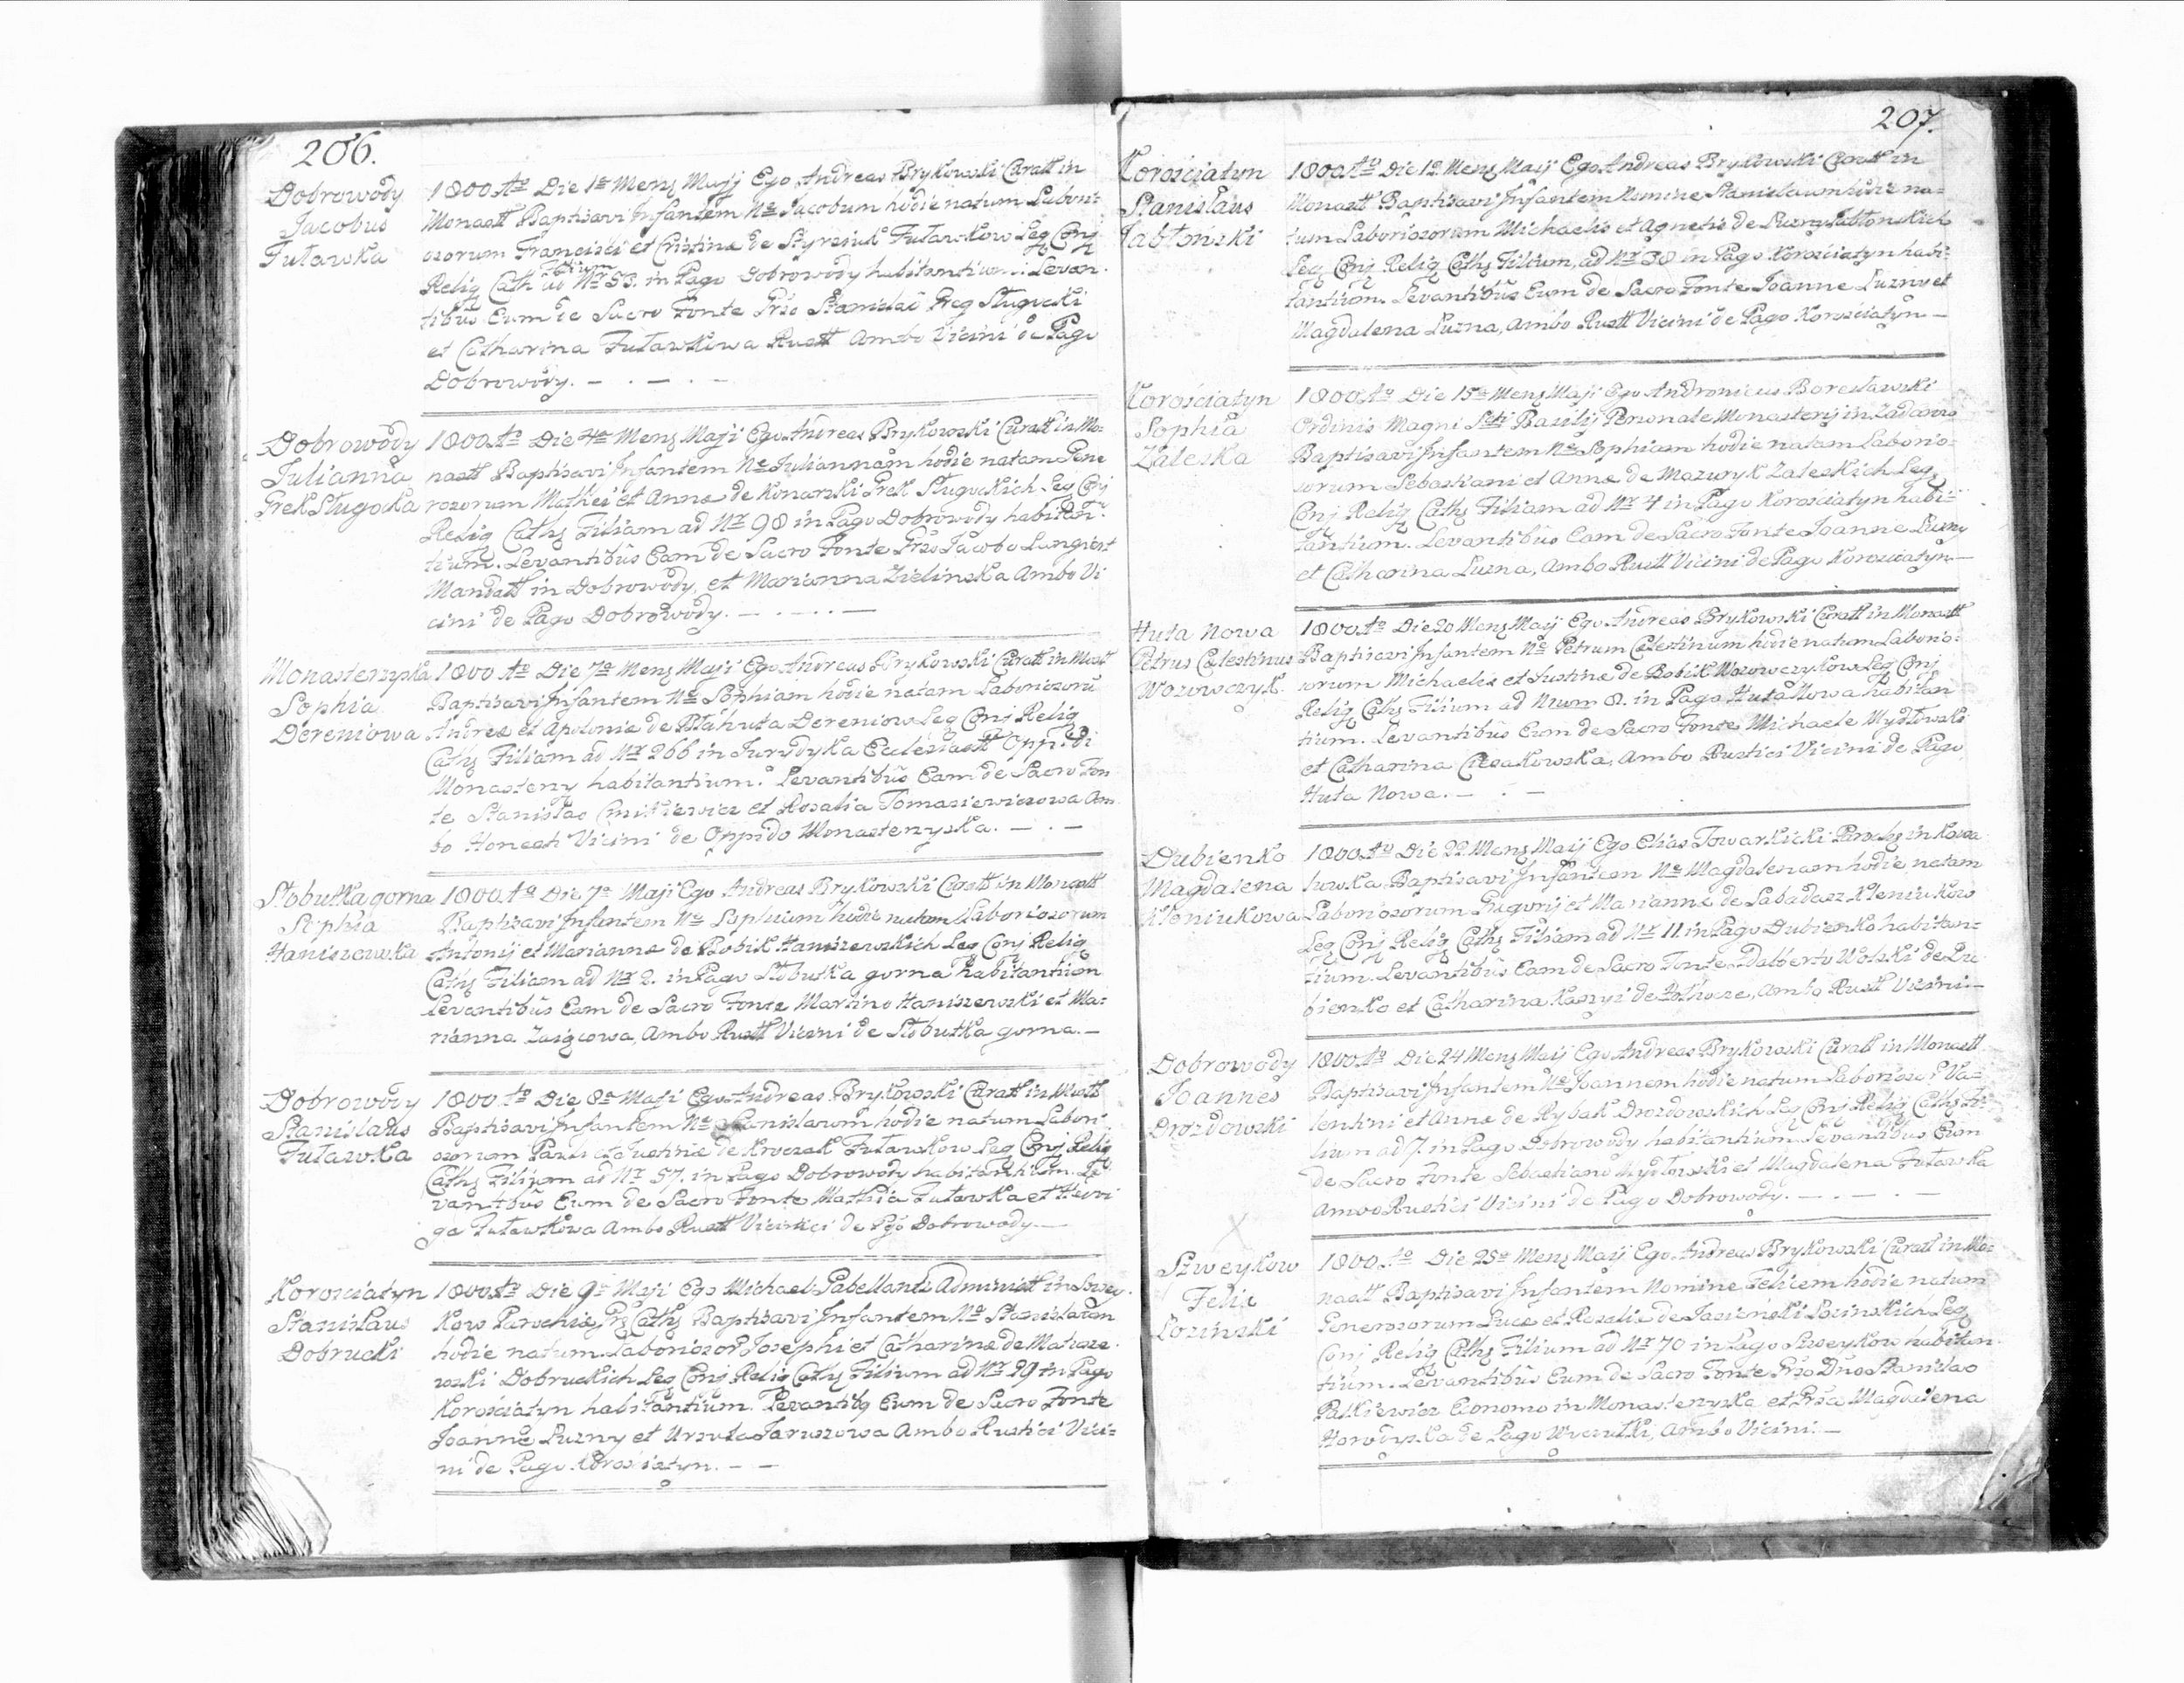 206.
Dobrowody
Jacobus
Futawska
1800 Ao Die 1a Mens Maji Ego Andreas Brykowski Curatt in
Monastt Baptisavi Infantem Ne Jacobum hodie natum Labori-
osorum Francisci et Cristina de Styrsiuk Futawkow Leg Conj
Relig Cath Filium ad Nr 53. in Pago Dobrowody habitantium. Levan-
tibus Eum de Sacro Fonte Grso Stanislao Greg Stugocki
et Catharina Futawkowa Rustt Ambo Vicini de Pago
Dobrowody.
Dobrowody
Julianna
Grek Stugocka
1800 Ao Die 4a Mens Maji Ego Andreas Brykowski Curatt in Mo-
nastt Baptisavi Infantem Ne Juliannam hodie natam Gene
rosorum Mathei et Anna de Konarski Grek Stugockich Leg Conj
Relig Caths Filiam ad Nr 98 in Pago Dobrowody habitan-
tium. Levantibus Eam de Sacro Fonte Grso Jacobo
Mandatt in Dobrowody, et Marianna Zielinska Ambo Vi
cini de Pago Dobrowody.
Monasterzyska
Sophia
Dereniowa
1800 Ao Die 7a Mens Maji Ego Andreas Brykowski Curatt in Mostt
Baptisavi Infantem Ne Sophiam hodie natam Laboriosoru
Andrea et Apolonia de Dereniow Leg Conj Relig
Caths Filiam ad Nr 266 in Jurydyka Eclesiastt Oppidi
Monasterzy habitantium. Levantibus Eam de Sacro Fon
te Stanislao et Rosalia Tomasiewiczowa Am
bo Honesti Vicini de Oppido Monasterzyska.
Stobutka gorna
Sophia
Haniszewska
1800 Ao Die 7a Maji Ego Andreas Brykowski Curatt in Monastt
Baptisavi Infantem Ne Sophiam hodie natam Laboriosorum
Antonij et Marianna de Bobik Haniszewskich Leg Conj Relig
Caths Filiam ad Nr 2. in Pago Stobutka gorna habitantium
Levantibus Eam de Sacro Fonte Martino Haniszewski et Ma-
rianna Zaiącowa, Ambo Rustt Vicini de Stobutka gorna.
Dobrowody
Stanislaus
Futawka
1800 Ao Die 8a Maji Ego Andreas Brykowski Curatt in Mostt
Baptisavi Infantem Ne Stanislawum hodie natum Labori
osorum Pauli et Justina de Krwczak Futawkow Leg Conj Relig
Caths Filium ad Nr 57. in Pago Dobrowody habitantium. Le
vantibus Eum de Sacro Fonte Mathia Futawka et Hedvi
ge Futawkowa Ambo Rustt Vicinici de Pgo Dobrowody.
Korosciatyn
Stanislaus
Dobrucki
1800 Ao Die 9a Maji Ego Michael Administt in
Kow Parochia Caths Baptisavi Infantem Ne Stanislaum
hodie natum Laboriosor Josephi et Catharina de Matusze-
wski Dobruckich Leg Conj Relig Caths Filium ad Nr 29 in Pago
Korosciatyn habitantium. Levantibs Eum de Sacro Fonte
Joanne Luzny et Urszula Jaruszowa Ambo Rustici Vici-
ni de Pago Korosciatyn.
207.
Korosciatyn
Stanislaus
Jabtonski
1800 Ao Die 12 Mens Maij Ego Andreas Brykowski Curatt in
Monastt Baptisavi Infantem Nomine Stanislaum hodie na-
tum Laboriosorum Michaelis et Agnetis de Luzny Jabtonskich
Leg Conj Relig Caths Filium, ad Nr 38 in Pago Korosciatyn habi-
tantium. Levantibus Eum de Sacro Fonte Joanne Luzny et
Magdalena Luzna, Ambo Rustt Vicini de Pago Korosciatyn
Korosciatyn
Sophia
Zaleska
1800 Ao Die 15a Mens Maji Ego Andronicus Borestawski
Ordinis Magni Scti Basilij Personate Monasterij in Zadarow
Baptisavi Infantem Ne Sophiam hodie natam Laborio-
sorum Sebastiani et Anna de Mazuryk Zaleskich Leg
Conj Relig Caths Filiam ad Nr 4 in Pago Korosciatyn habi-
tantium. Levantibus Eam de Sacro Fonte Joanne Luzny
et Catharina Luzna, Ambo Rustt Vicini de Pago Korosciatyn
Huta Nowa
Petrus Calestinus
Wozowczyk
1800 Ao Die 20 Mens Maij Ego Andreas Brykowski Curatt in Monastt
Baptisavi Infantem Ne Petrum Calestinum hodie natum Laborio-
sorum Michaelis et Justina de Bobik Wozowczykow Leg Conj
Relig Caths Filium ad Nrum 8. in Pago Huta Nowa habitan
tium. Levantibus Eum de Sacro Fonte Michaele Mydtowski
et Catharina Ciesakowska, Ambo Rustici Vicini de Pago
Huta Nowa.
Dubienko
Magdalena
Kleniukowa
1800 Ao Die 22 Mens Maij Ego Elias Towarnicki Parochs in Kowa
luwka Baptisavi Infantem Ne Magdalenam hodie natam
Laboriosorum Gregorij et Marianna de Labadasz Kleniukow
Leg Conj Relig Caths Filiam ad Nr 11. in Pago Dubienko habitan-
tium. Levantibus Eam de Sacro Fonte Adalberto Wolski de Du
bienko et Catharina Kaszyi de, Ambo Rustt Vicini
Dobrowody
Joannes
Drozdowski
1800 Ao Die 24 Mens Maij Ego Andreas Brykowski Curatt in Monastt
Baptisavi Infantem Ne Joannem hodie natum Laborioso r Va-
lentini et Anna de Rybak Drozdowskich Leg Conj Relig Caths Fi-
lium ad 7. in Pago Dobrowody habitantium Levantibus Eum
de Sacro Fonte Sebastiano Mydtowski et Magdalena Futawska
Ambo Rustici Vicini de Pago Dobrowody.
X
Szweykow
Felix
Lozinski
1800 Ao Die 25a Mens Maij Ego Andreas Brykowski Curatt in Mo-
nastt Baptisavi Infantem Nomine Felicem hodie natum
Generosorum Luca et Rosalia de Jasienski Lozinskich Leg
Conj Relig Caths Filium ad Nr 70 in Pago Szweykow habitan-
tium. Levantibus Eum de Sacro Fonte Grso Dno Stanislao
Patkiewicz Economo in Monasterzyska et Grsa Magdalena
Horodyska de Pago Wyczutki, Ambo Vicini.